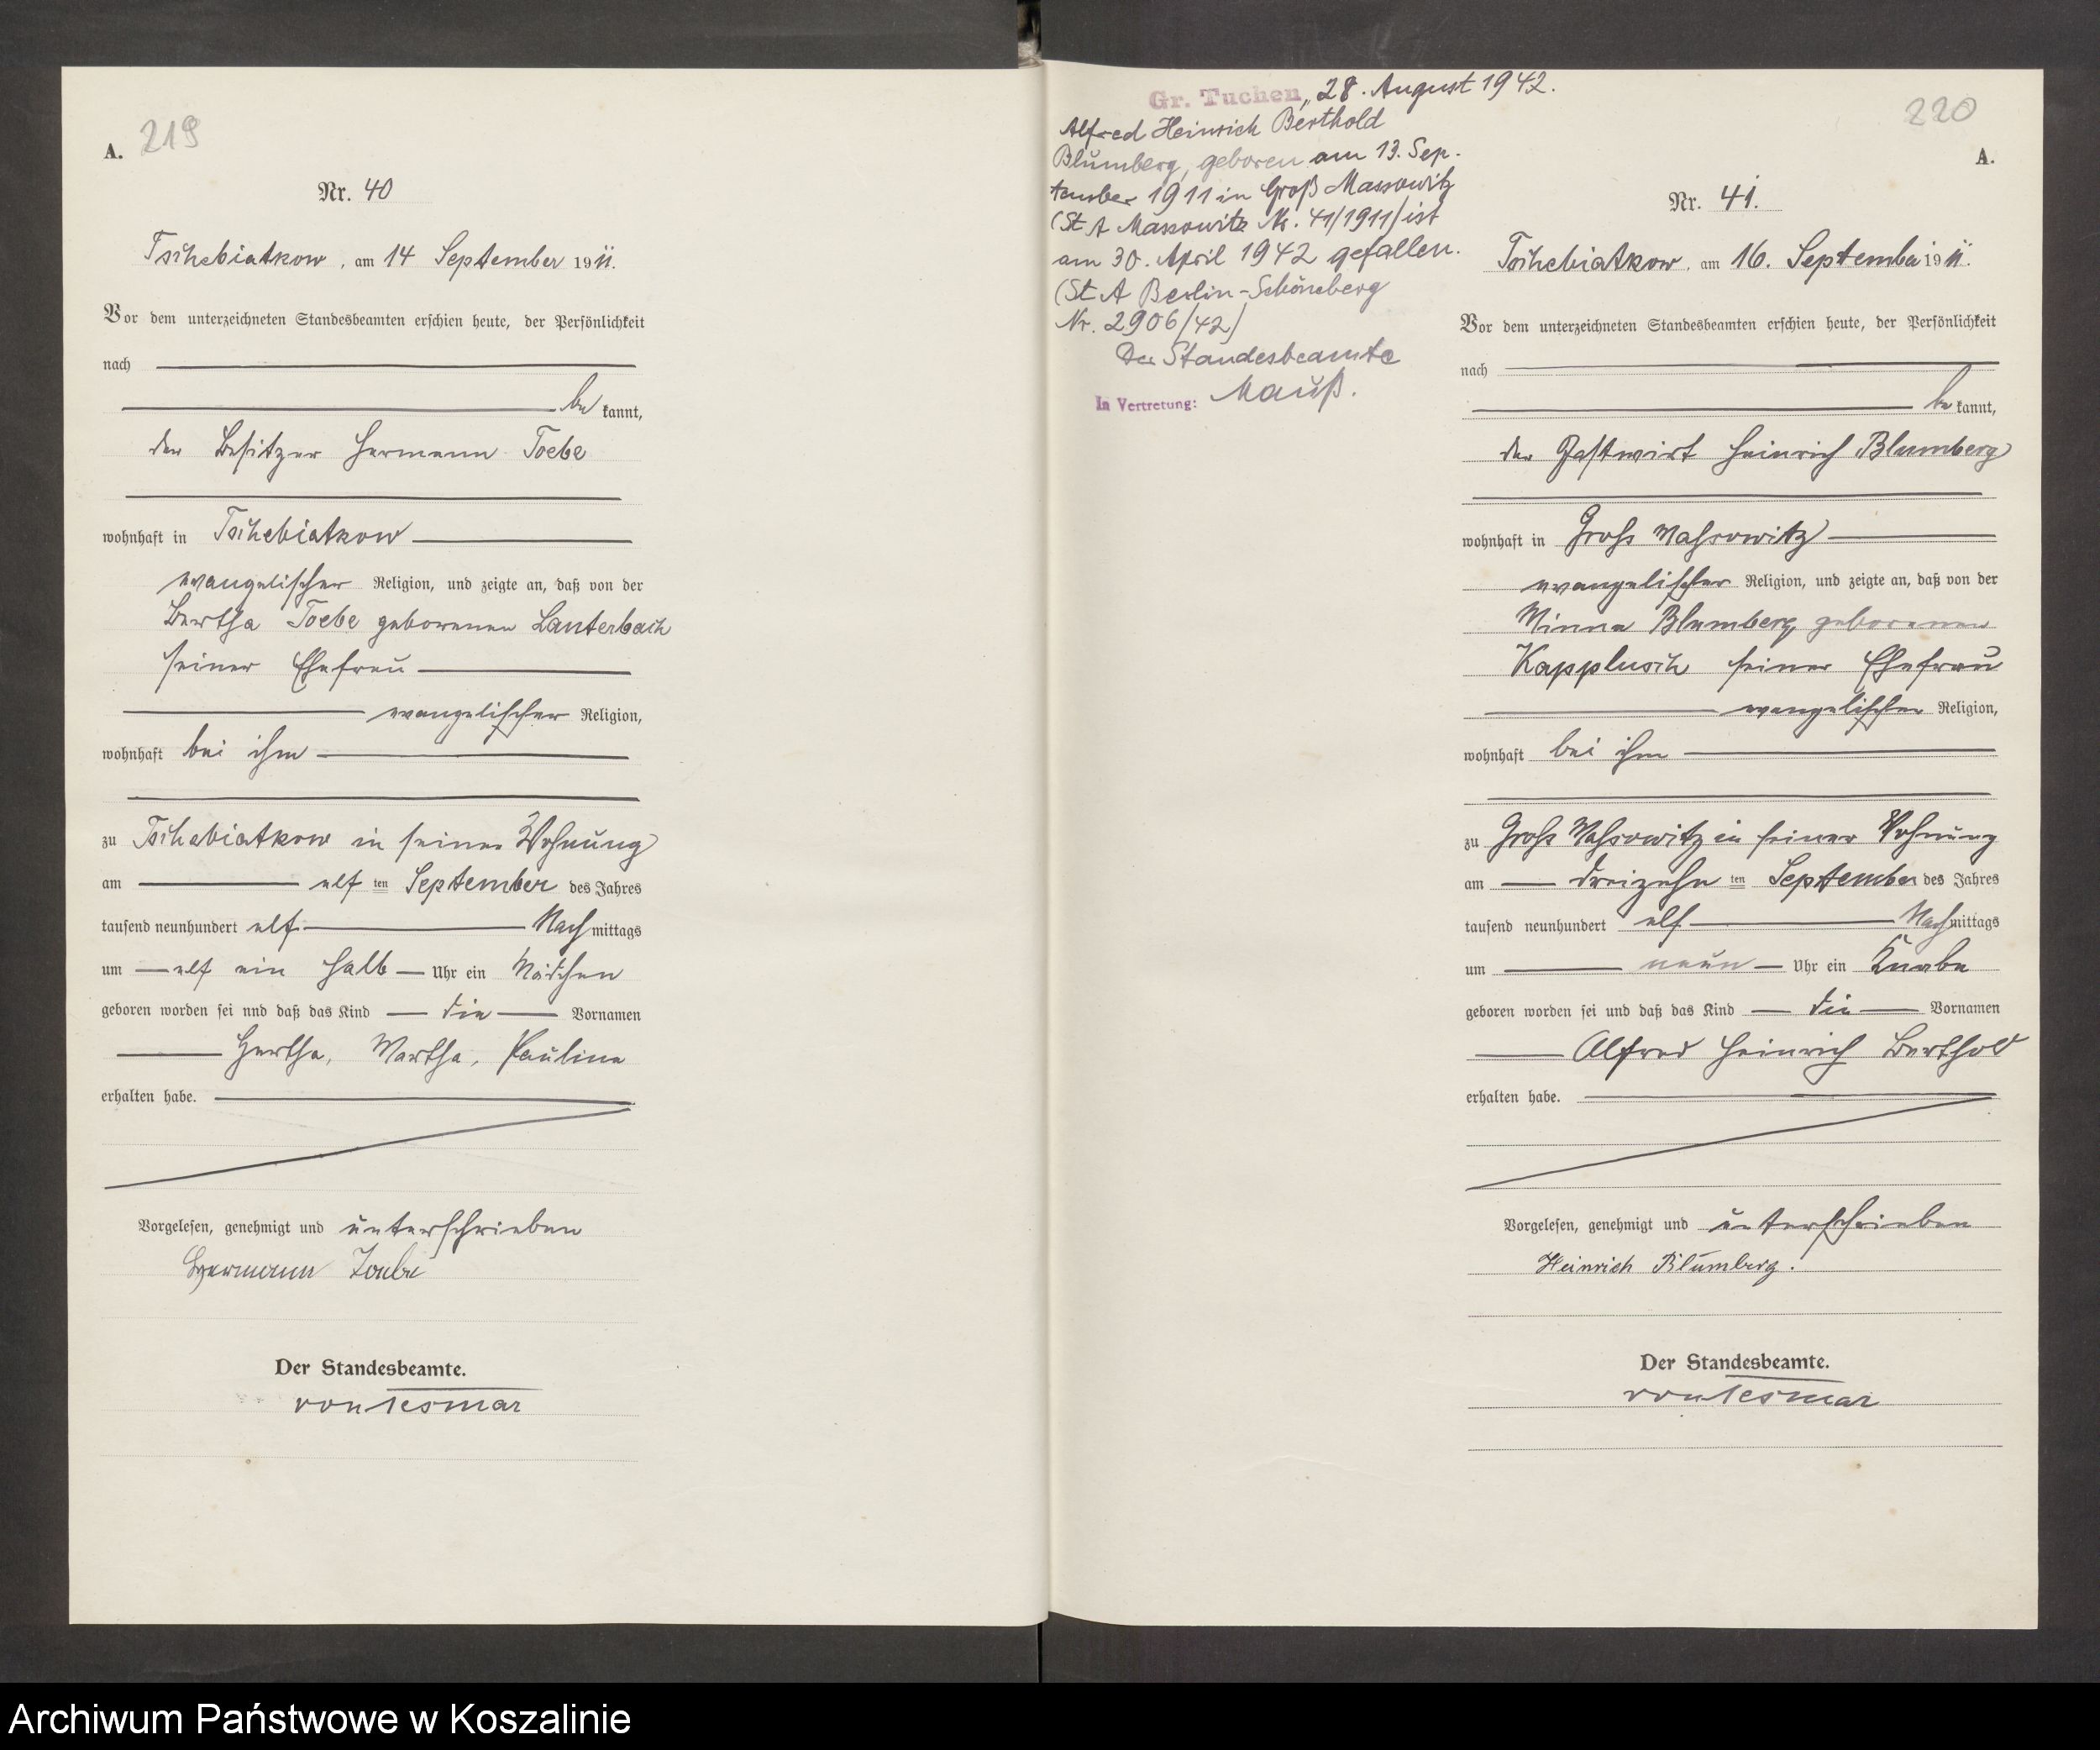 219
A.
Nr. 40
Tschebiatkow, am 14 September 1911.
Vor dem unterzeichneten Standesbeamten erschien heute, der Persönlichkeit
nach
be kannt,
der Besitzer Hermann Toebe
wohnhaft in Tschebiatkow
evangelischer Religion, und zeigte an, daß von der
Bertha Toebe geborenen Lauterbach
seiner Ehefrau
evangelischer Religion,
wohnhaft bei ihm
zu Tschebiatkow in seiner Wohnung
am elf ten September des Jahres
tausend neunhundert elf Nach mittags
um elf ein halb Uhr ein Mädchen
geboren worden sei nnd daß das Kind die Vornamen
Hertha, Martha, Pauline
erhalten habe.
Vorgelesen, genehmigt und unterschrieben
Hermann Toebe
Der Standesbeamte.
von Tesmar
Gr. Tuchen, 28. August 1942.
Alfred Heinrich Berthold
Blumberg, geboren am 13. Sep-
tember 1911 in Groß Massowitz
(St A Massowitz Nr. 41/1911) ist
am 30. April 1942 gefallen.
(St A Berlin-Schöneberg
Nr. 2906/42)
Der Standesbeamte
In Vertretung: Mauß.
220
A.
Nr. 41.
Tschebiatkow, am 16. September 1911.
Vor dem unterzeichneten Standesbeamten erschien heute, der Persönlichkeit
nach
be kannt,
der Gastwirt Heinrich Blumberg
wohnhaft in Gross Massowitz
evangelischer Religion, und zeigte an, daß von der
Minna Blumberg geborenen
Kapplusch seiner Ehefrau
evangelischer Religion,
wohnhaft bei ihm
zu Gross Massowitz in seiner Wohnung
am dreizehn ten September des Jahres
tausend neunhundert elf Nach mittags
um neun Uhr ein Knabe
geboren worden sei und daß das Kind die Vornamen
Alfred Heinrich Berthold
erhalten habe.
Vorgelesen, genehmigt und unterschrieben
Heinrich Blumberg.
Der Standesbeamte.
von Tesmar
Archiwum Państwowe w Koszalinie